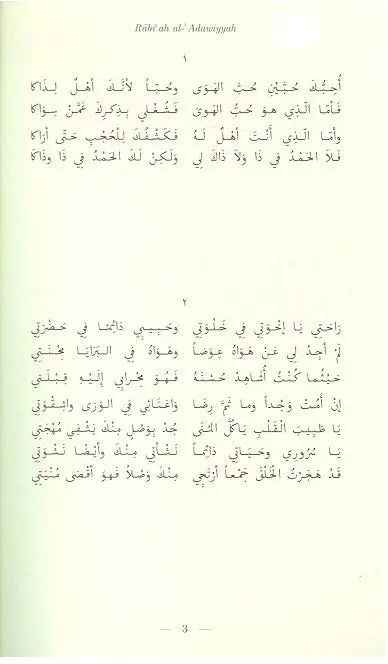 Rābiʿah al-ʿAdawiyyah
١
أُحِبُّكَ حُبَّيْنِ حُبَّ الهَوَى وحُبّاً لأنَّكَ أهْلٌ لِذَاكا
فَأمّا الَّذِي هو حُبُّ الهَوَى فَشُغْلِي بِذِكرِكَ عَمَّنْ سِوَاكا
وأمّا الَّذِي أَنْتَ أَهْلٌ لَهُ فَكَشْفُكَ لِلْحُجْبِ حَتَّى أرَاكا
فَلاَ الحَمْدُ فِي ذَا وَلاَ ذَاكَ لِي وَلَكِنْ لَكَ الحَمْدُ فِي ذَا وذَاكَا
٢
رَاحَتِي يَا إخْوَتِي فِي خَلْوَتِي وحَبِيبِي دَائِمًا فِي حَضْرَتِي
لَمْ أجِدْ لِي عَنْ هَوَاهُ عِوَضاً وهَوَاهُ فِي البَرَايَا مِحْنَتِي
حَيْثُما كُنْتُ أُشَاهِدْ حُسْنَهُ فَهُوَ مِحْرابِي إلَيْهِ قِبْلَتِي
إنْ أمُتْ وَجْداً وما ثَمَّ رِضَا وَاعَنَائِي فِي الوَرَى وَاشِقْوَتِي
يَا طَبِيبَ الْقَلْبِ يَاكُلَّ المُنَى جُدْ بِوَصْلٍ مِنْكَ يَشْفِي مُهْجَتِي
يَا سُرُورِي وحَيَاتِي دَائِماً نَشْأتِي مِنْكَ وأيْضًا نَشْوَتِي
قَدْ هَجَرْتُ الْخَلْقَ جَمْعاً أرْتَجِي مِنْكَ وَصْلاً فَهوَ أَقْصَى مُنْيَتِي
— 3 —